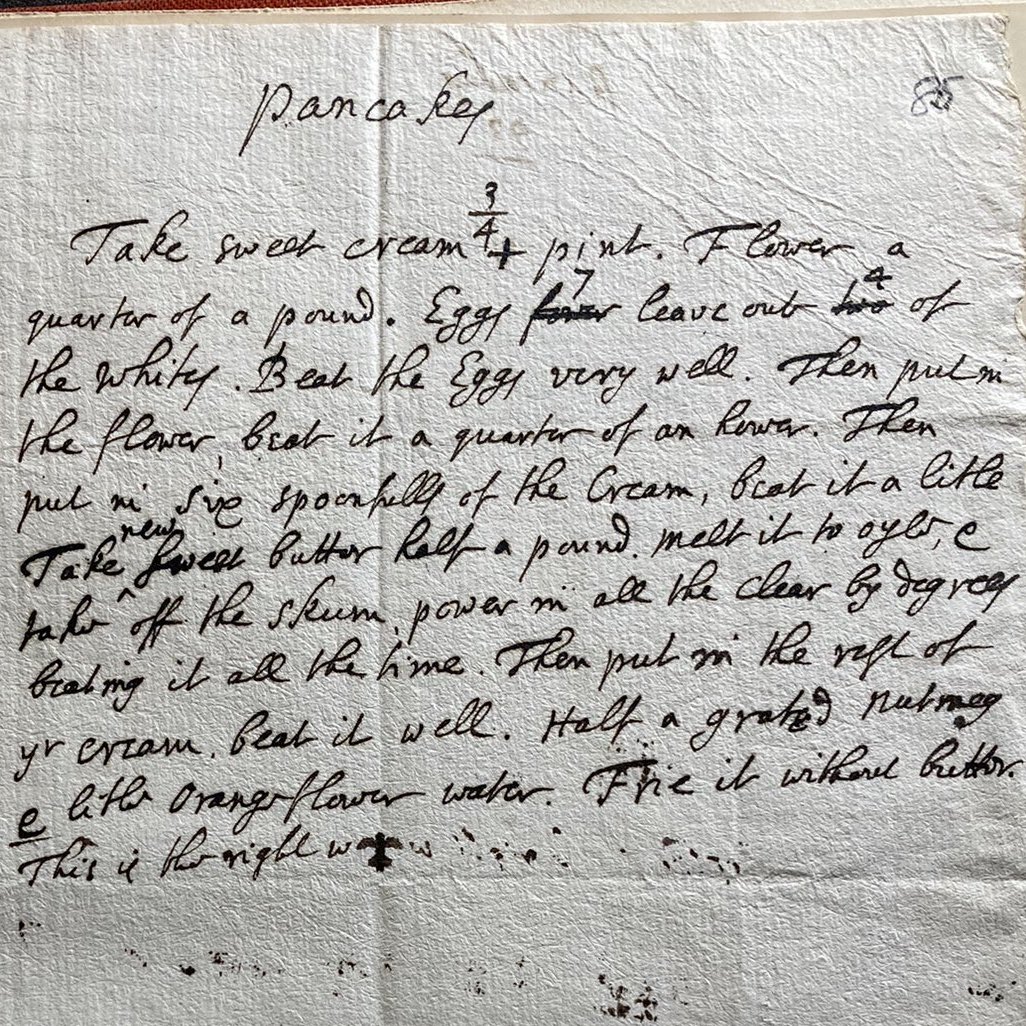 Pancakes
85
Take sweet cream 3/4 + pint. Flower a
quarter of a pound. Eggs four 7 leave out two 4 of
the whites. Beat the Eggs very well. Then put in
the flower, beat it a quarter of an hower. Then
put in six spoonfulls of the Cream, beat it a litle
Take new sweet butter half a pound. melt it to oyle, &
take off the skum, power in all the clear by degrees
beating it all the time. Then put in the rest of
yr cream. beat it well. Half a grated nutmeg
& litle orangeflower water. Frie it without butter.
This is the right way